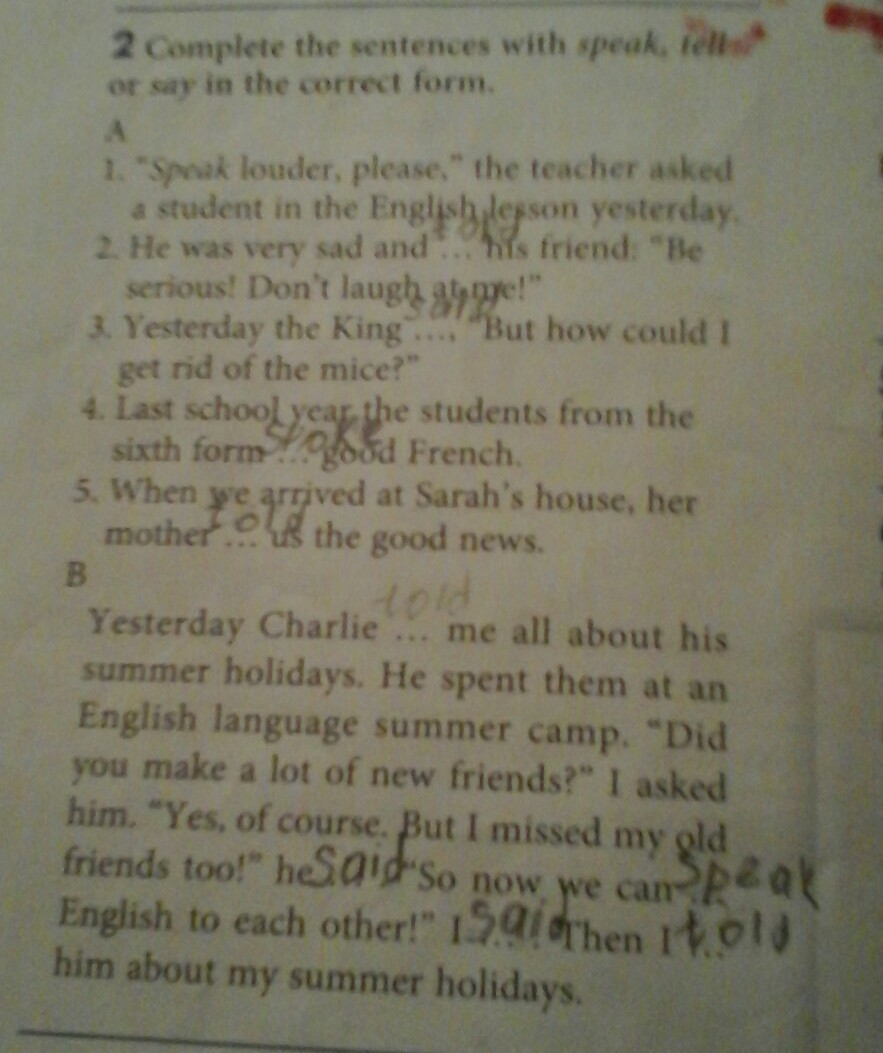 2 Complete the sentences with speak, tell
or say in the correct form.
A
1. "Speak louder, please," the teacher asked
a student in the English lesson yesterday.
told
2. He was very sad and ... his friend: "Be
serious! Don't laugh at me!"
said
3. Yesterday the King ..., "But how could I
get rid of the mice?"
4. Last school year the students from the
spoke
sixth form ... good French.
5. When we arrived at Sarah's house, her
told
mother ... us the good news.
B
told
Yesterday Charlie ... me all about his
summer holidays. He spent them at an
English language summer camp. "Did
you make a lot of new friends?" I asked
him. "Yes, of course. But I missed my old
friends too!" he said "So now we can speak
English to each other!" I said Then I told
him about my summer holidays.